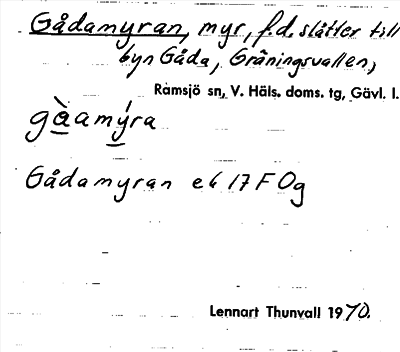 Gådamyran, myr, f.d. slåtter till
byn Gåda, Gräningsvallen,
Ramsjö sn, V. Häls. doms. tg, Gävl. l.
gàamýra
Gådamyran ek 17 F 0g
Lennart Thunvall 1970.